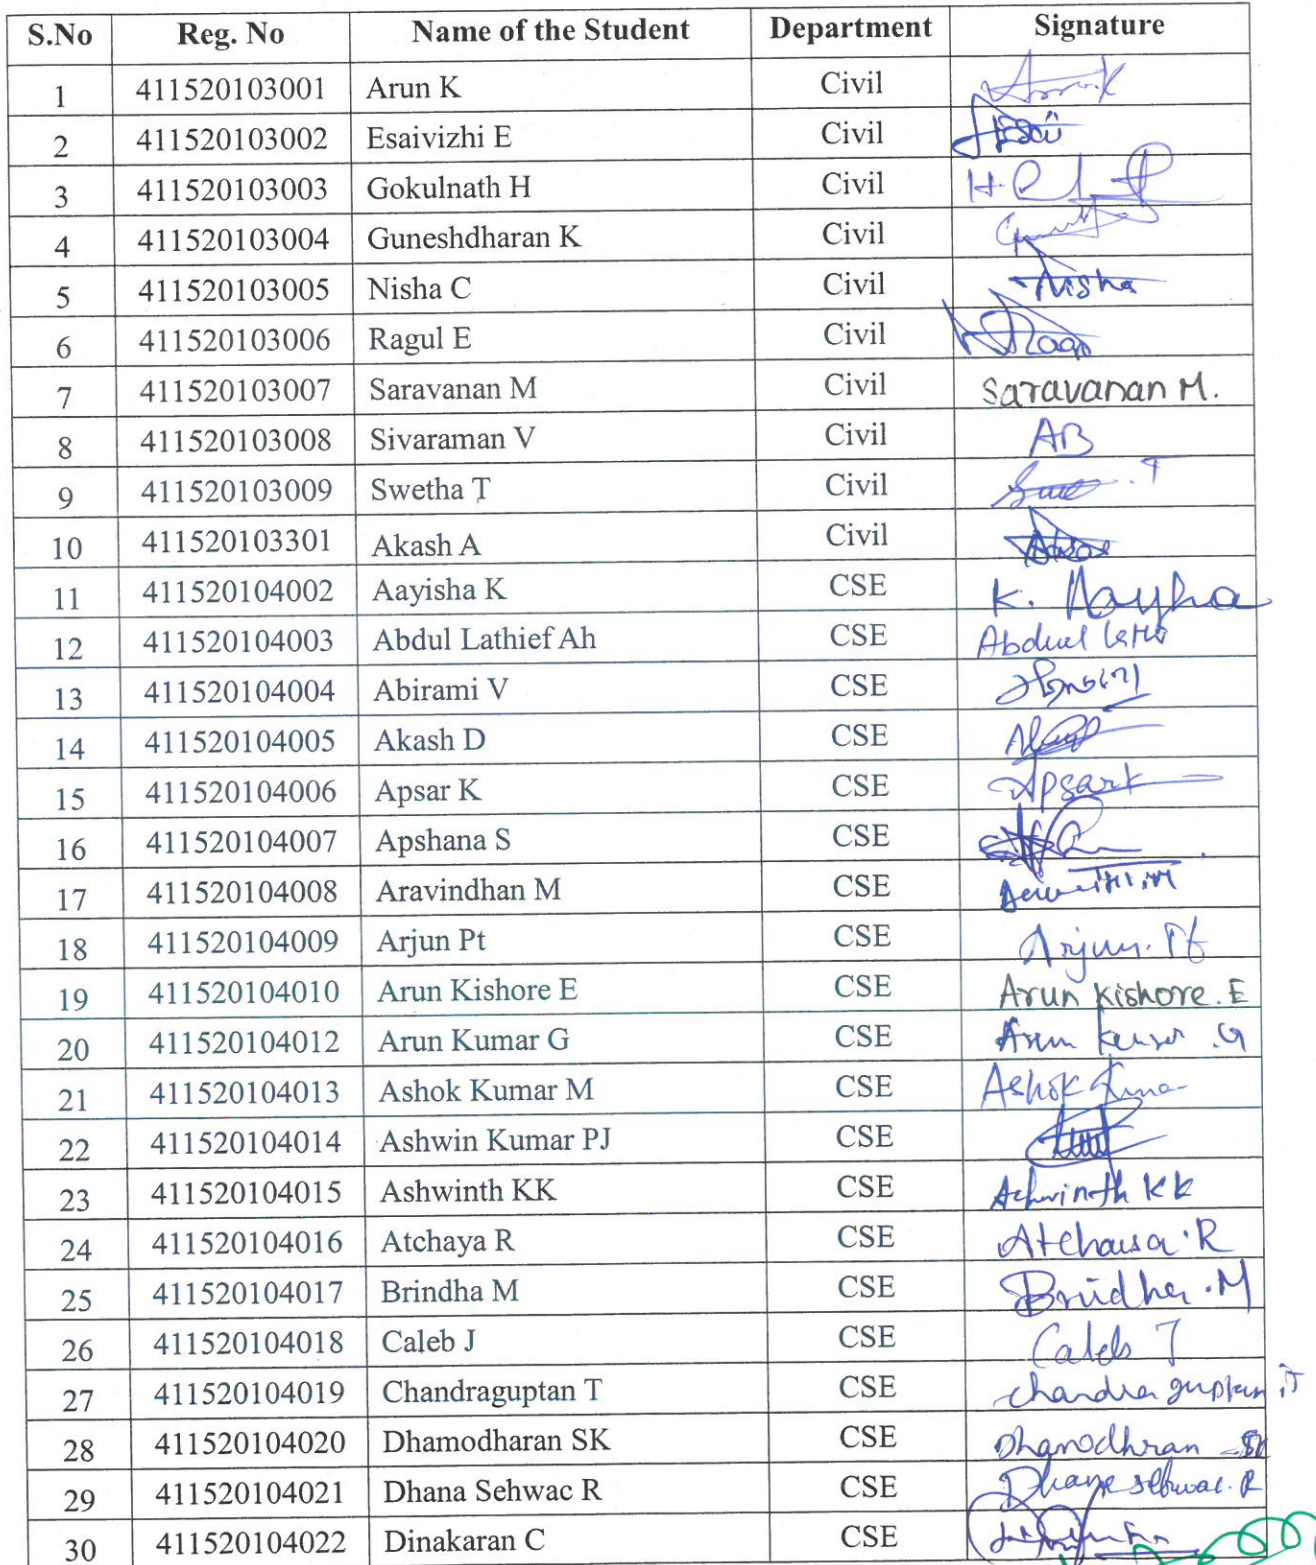 S.No Reg. No Name of the Student Department Signature
1 411520103001 Arun K Civil
2 411520103002 Esaivizhi E Civil
3 411520103003 Gokulnath H Civil
4 411520103004 Guneshdharan K Civil
5 411520103005 Nisha C Civil Nisha
6 411520103006 Ragul E Civil
7 411520103007 Saravanan M Civil Saravanan M.
8 411520103008 Sivaraman V Civil AB
9 411520103009 Swetha T Civil
10 411520103301 Akash A Civil
11 411520104002 Aayisha K CSE K.
12 411520104003 Abdul Lathief Ah CSE Abdul
13 411520104004 Abirami V CSE
14 411520104005 Akash D CSE
15 411520104006 Apsar K CSE Apsar K
16 411520104007 Apshana S CSE
17 411520104008 Aravindhan M CSE
18 411520104009 Arjun Pt CSE Arjun. Pt
19 411520104010 Arun Kishore E CSE Arun Kishore. E
20 411520104012 Arun Kumar G CSE Arun Kumar .G
21 411520104013 Ashok Kumar M CSE Ashok Kumar
22 411520104014 Ashwin Kumar PJ CSE
23 411520104015 Ashwinth KK CSE Ashwinth KK
24 411520104016 Atchaya R CSE Atchaya. R
25 411520104017 Brindha M CSE Brindha .M
26 411520104018 Caleb J CSE Caleb J
27 411520104019 Chandraguptan T CSE Chandraguptan .T
28 411520104020 Dhamodharan SK CSE Dhamodhran SK
29 411520104021 Dhana Sehwac R CSE Dhana Sehwac. R
30 411520104022 Dinakaran C CSE